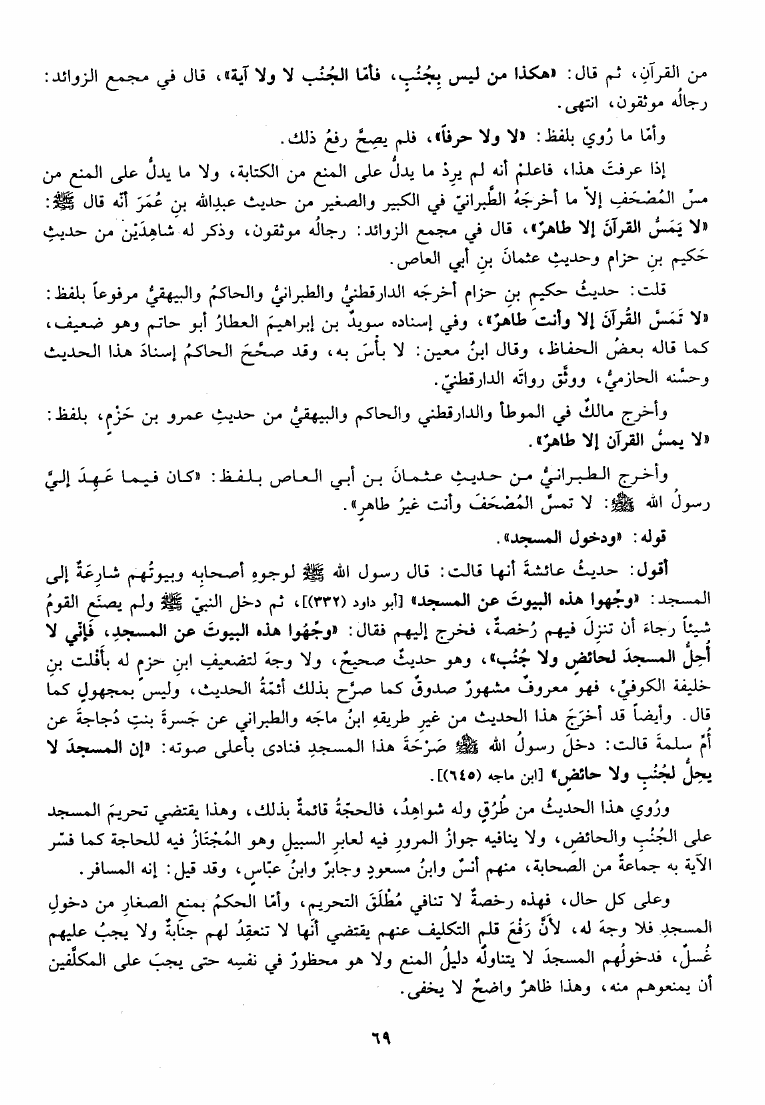 من القرآنِ، ثم قال: «هكذا من ليس بِجُنُبٍ، فأمّا الجُنُب لا ولا آية»، قال في مجمع الزوائد:
رجالُه موثقون، انتهى.
وأمّا ما رُوي بلفظ: «لا ولا حرفاً»، فلم يصِحَّ رفعُ ذلك.
إذا عرفتَ هذا، فاعلمْ أنه لم يرِدْ ما يدلُّ على المنع من الكتابة، ولا ما يدلُّ على المنع من
مسِّ المُصْحَفِ إلاّ ما أخرجَهُ الطَّبرانيّ في الكبير والصغير من حديث عبدِالله بنِ عُمَرَ أنّه قال ﷺ:
«لا يَمَسُّ القرآنَ إلا طاهرٌ»، قال في مجمع الزوائد: رجالُه موثقون، وذكر له شاهِدَيْن من حديثِ
حَكيم بنِ حزام وحديثِ عثمانَ بنِ أبي العاص.
قلت: حديثُ حكيمِ بنِ حزام أخرجَه الدارقطنيُّ والطبرانيُّ والحاكمُ والبيهقيُّ مرفوعاً بلفظ:
«لا تَمَسَّ القُرآنَ إلا وأنت طاهرٌ»، وفي إسناده سويدُ بن إبراهيمَ العطارُ أبو حاتم وهو ضعيف،
كما قاله بعضُ الحفاظ، وقال ابنُ معين: لا بأسَ به، وقد صحَّحَ الحاكمُ إسنادَ هذا الحديث
وحسَّنه الحازميُّ، ووثَّق رواتَه الدارقطنيّ.
وأخرج مالكٌ في الموطأ والدارقطني والحاكم والبيهقيُّ من حديثِ عمرو بن حَزْمٍ، بلفظ:
«لا يمسُّ القرآن إلا طاهرٌ».
وأخرج الطبرانيُّ من حديثِ عثمانَ بن أبي العاص بلفظ: «كان فيما عَهِدَ إليَّ
رسولُ الله ﷺ: لا تمسَّ المُصْحَفَ وأنت غيرُ طاهرٍ».
قوله: «ودخول المسجد».
أقول: حديثُ عائشةَ أنها قالت: قال رسول الله ﷺ لوجوهِ أصحابِه وبيوتُهم شارِعَةٌ إلى
المسجد: «وجِّهوا هذه البيوتَ عن المسجد» [أبو داود (٣٣٢)]، ثم دخل النبيّ ﷺ ولم يصنَع القومُ
شيئاً رجاءَ أن تنزِلَ فيهم رُخصةٌ، فخرج إليهم فقال: «وجِّهُوا هذه البيوتَ عن المسجدِ، فَإنّي لا
أُحِلُّ المسجدَ لحائضٍ ولا جُنُب»، وهو حديثٌ صحيحٌ، ولا وجهَ لتضعيفِ ابنِ حزمٍ له بأَفْلت بنِ
خليفة الكوفيِّ، فهو معروفٌ مشهورٌ صدوقٌ كما صرَّح بذلك أئمّةُ الحديث، وليس بمجهولٍ كما
قال. وأيضاً قد أخرَجَ هذا الحديث من غيرِ طريقهِ ابنُ ماجَه والطبراني عن جَسرةَ بنتِ دُجاجةَ عن
أمِّ سلمةَ قالت: دخلَ رسولُ الله ﷺ صَرْحَةَ هذا المسجدِ فنادى بأعلى صوته: «إن المسجدَ لا
يحِلُّ لجُنُبٍ ولا حائضٍ» [ابن ماجه (٦٤٥)].
ورُوي هذا الحديثُ من طُرُقٍ وله شواهِدُ، فالحجّةُ قائمةٌ بذلك، وهذا يقتضي تحريمَ المسجد
على الجُنُبِ والحائضِ، ولا ينافيه جوازُ المرورِ فيه لعابرِ السبيلِ وهو المُجْتَازُ فيه للحاجة كما فسّر
الآية به جماعةٌ من الصحابة، منهم أنسٌ وابنُ مسعودٍ وجابرٌ وابنُ عبّاسٍ، وقد قيل: إنه المسافر.
وعلى كل حال، فهذه رخصةٌ لا تنافي مُطْلَقَ التحريم، وأمّا الحكمُ بمنع الصغارِ من دخولِ
المسجدِ فلا وجهَ له، لأنَّ رَفْعَ قلمِ التكليف عنهم يقتضي أنّها لا تنعقِدُ لهم جنابةٌ ولا يجبُ عليهم
غُسلٌ، فدخولُهم المسجدَ لا يتناولُه دليلُ المنع ولا هو محظورٌ في نفسِه حتى يجبَ على المكلَّفين
أن يمنعوهم منه، وهذا ظاهرٌ واضحٌ لا يخفى.
٦٩